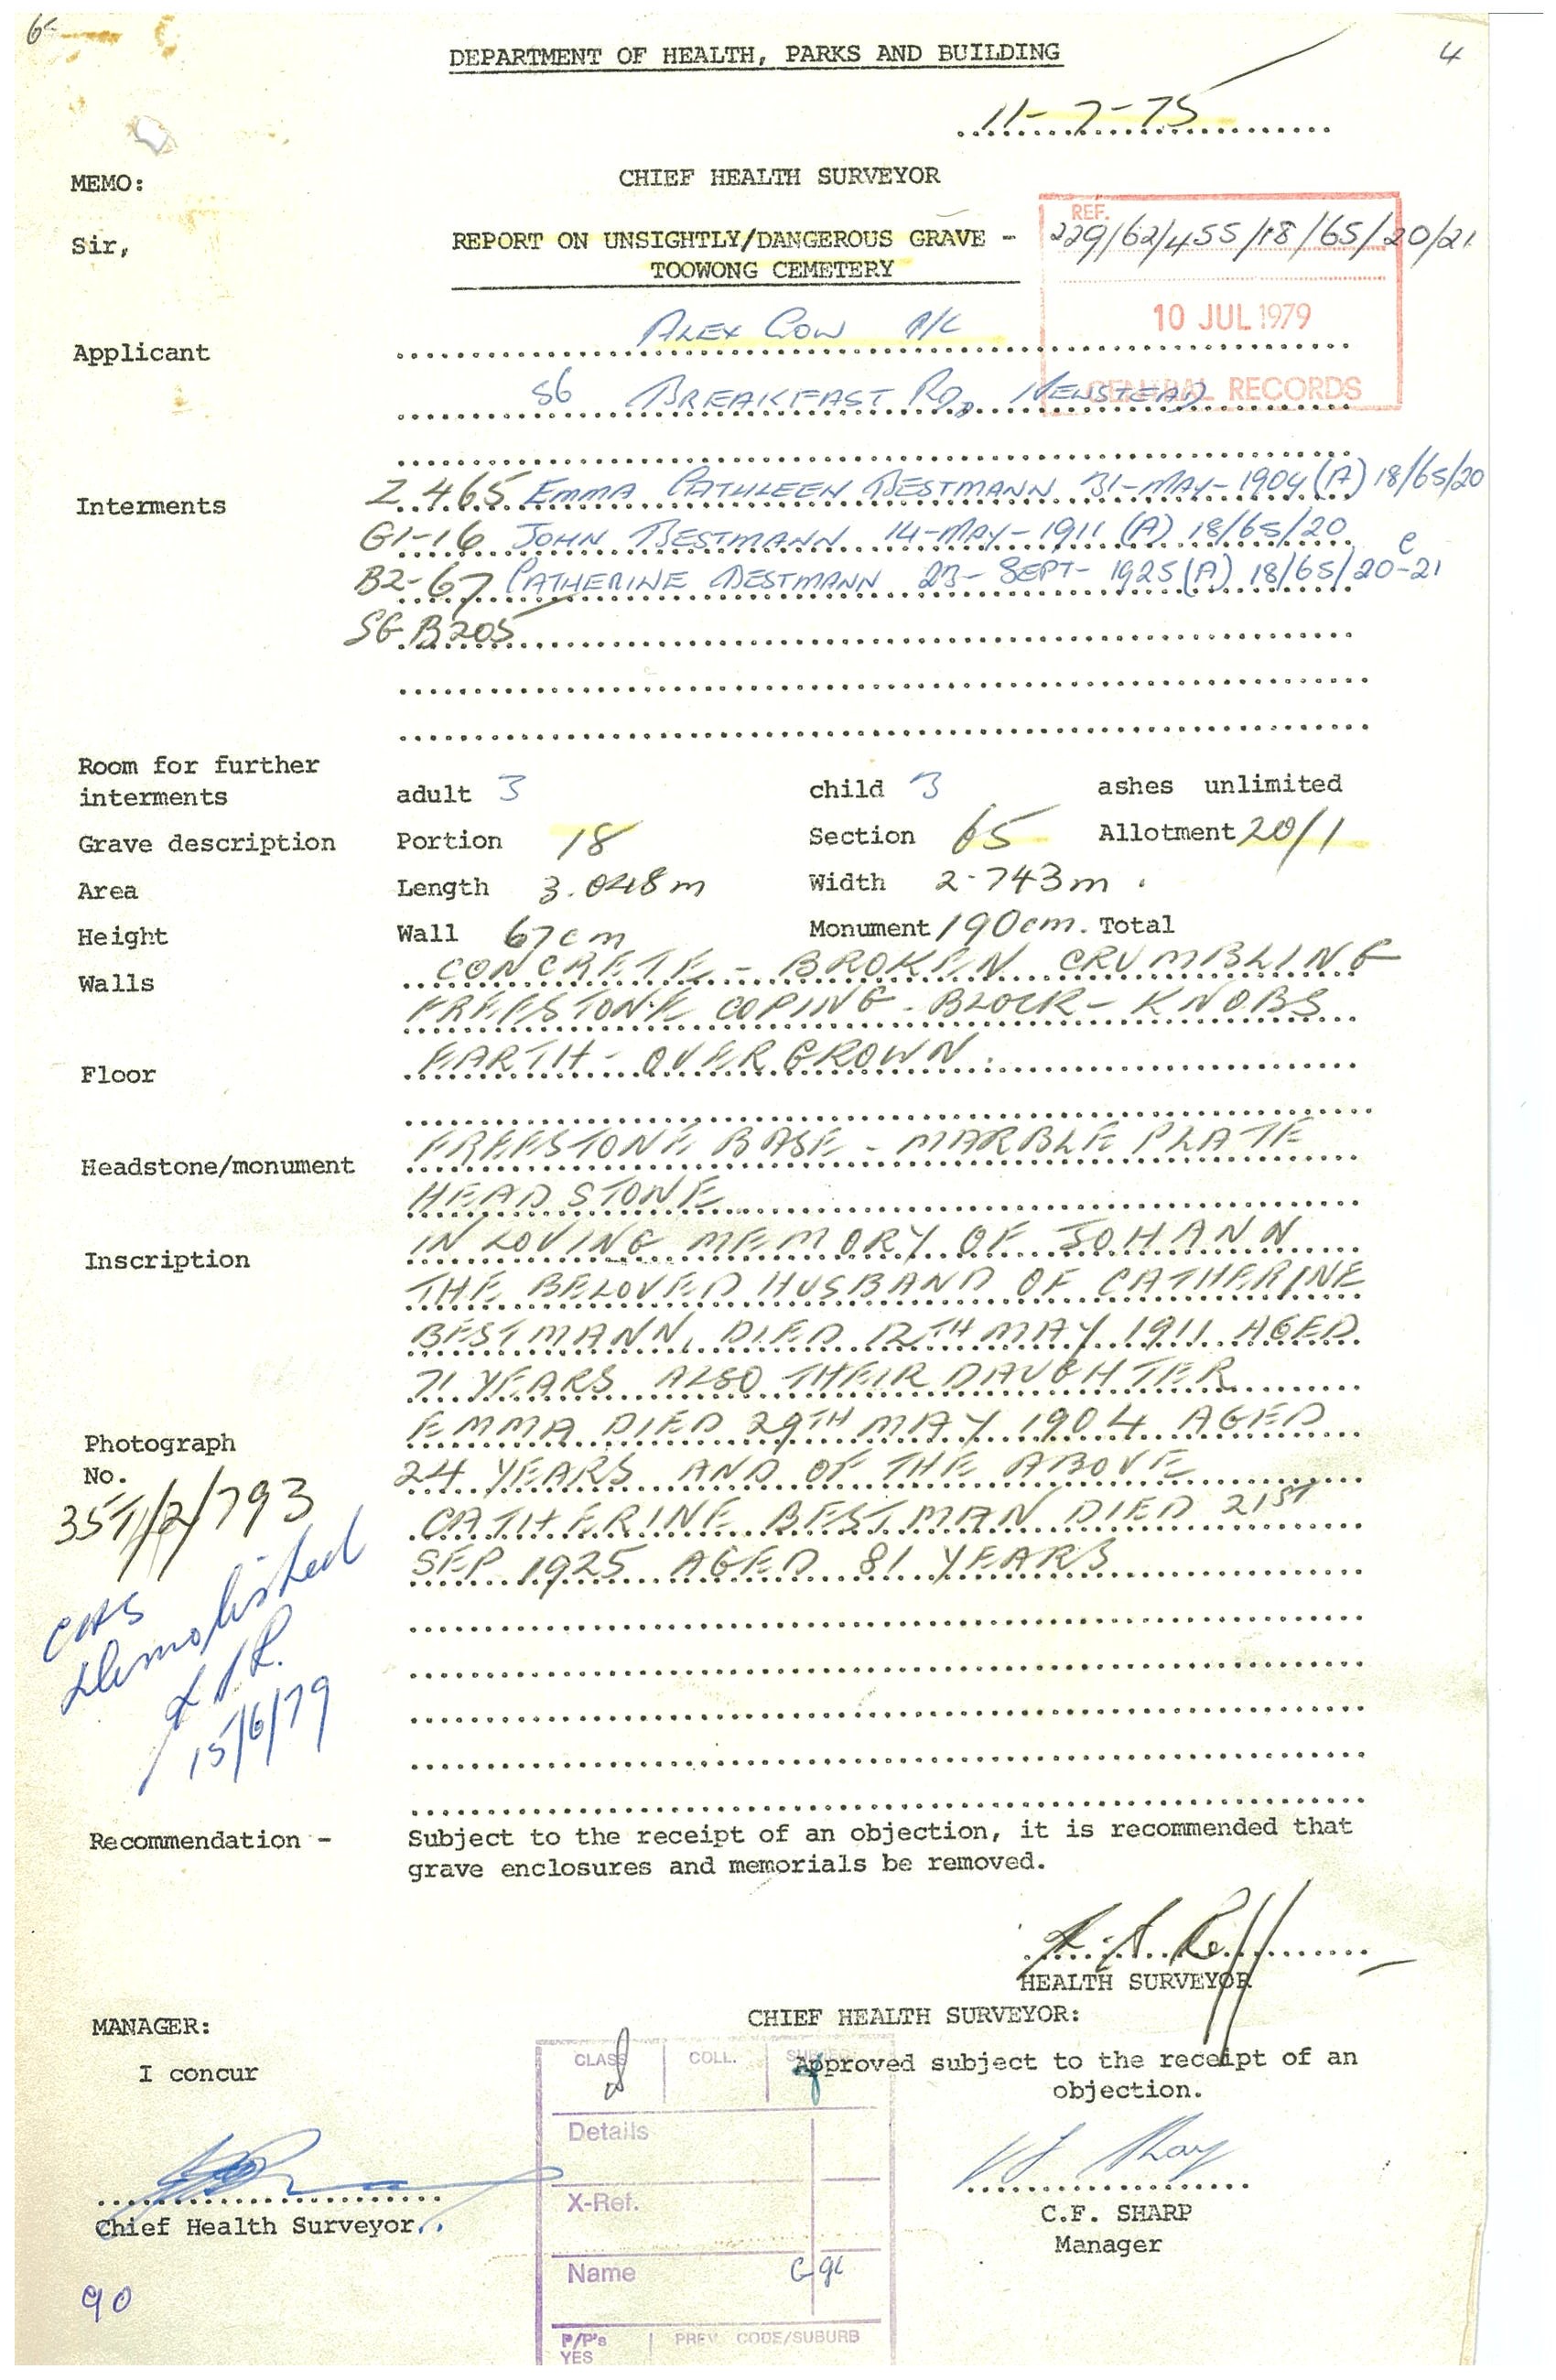 6
4
DEPARTMENT OF HEALTH, PARKS AND BUILDING
11-7-75
MEMO:
CHIEF HEALTH SURVEYOR
REF.
229/62/455/18/65/20/21
Sir,
REPORT ON UNSIGHTLY/DANGEROUS GRAVE -
TOOWONG CEMETERY
10 JUL 1979
CENTRAL RECORDS
Applicant ALEX GOW P/L
56 BREAKFAST RD, NEWSTEAD
Interments Z 465 EMMA CATHLEEN BESTMANN 31-MAY-1904 (A) 18/65/20
G1-16 JOHN BESTMANN 14-MAY-1911 (A) 18/65/20
B2-67 CATHERINE BESTMANN 23-SEPT-1925 (A) 18/65/20-21
SG B205
Room for further
interments adult 3 child 3 ashes unlimited
Grave description Portion 18 Section 65 Allotment 20/1
Area Length 3.048m Width 2.743m.
Height Wall 67cm Monument 190cm. Total
Walls CONCRETE - BROKEN CRUMBLING
FREESTONE COPING - BLOCK - KNOBS
Floor EARTH - OVERGROWN.
Headstone/monument FREESTONE BASE - MARBLE PLATE
HEADSTONE
Inscription IN LOVING MEMORY OF JOHANN
THE BELOVED HUSBAND OF CATHERINE
BESTMANN, DIED 12TH MAY 1911 AGED
71 YEARS ALSO THEIR DAUGHTER
EMMA DIED 29TH MAY 1904 AGED
24 YEARS AND OF THE ABOVE
CATHERINE BESTMAN DIED 21ST
SEP 1925 AGED 81 YEARS
Photograph
No.
35T/2/793
CHS
Demolished
15/6/79
Recommendation - Subject to the receipt of an objection, it is recommended that
grave enclosures and memorials be removed.
HEALTH SURVEYOR
MANAGER:
CHIEF HEALTH SURVEYOR:
I concur
Approved subject to the receipt of an
objection.
Chief Health Surveyor.
C.F. SHARP
Manager
CLASS COLL. SUBJECT
Details
X-Ref.
Name
P/P's
YES
PREV CODE/SUBURB
90